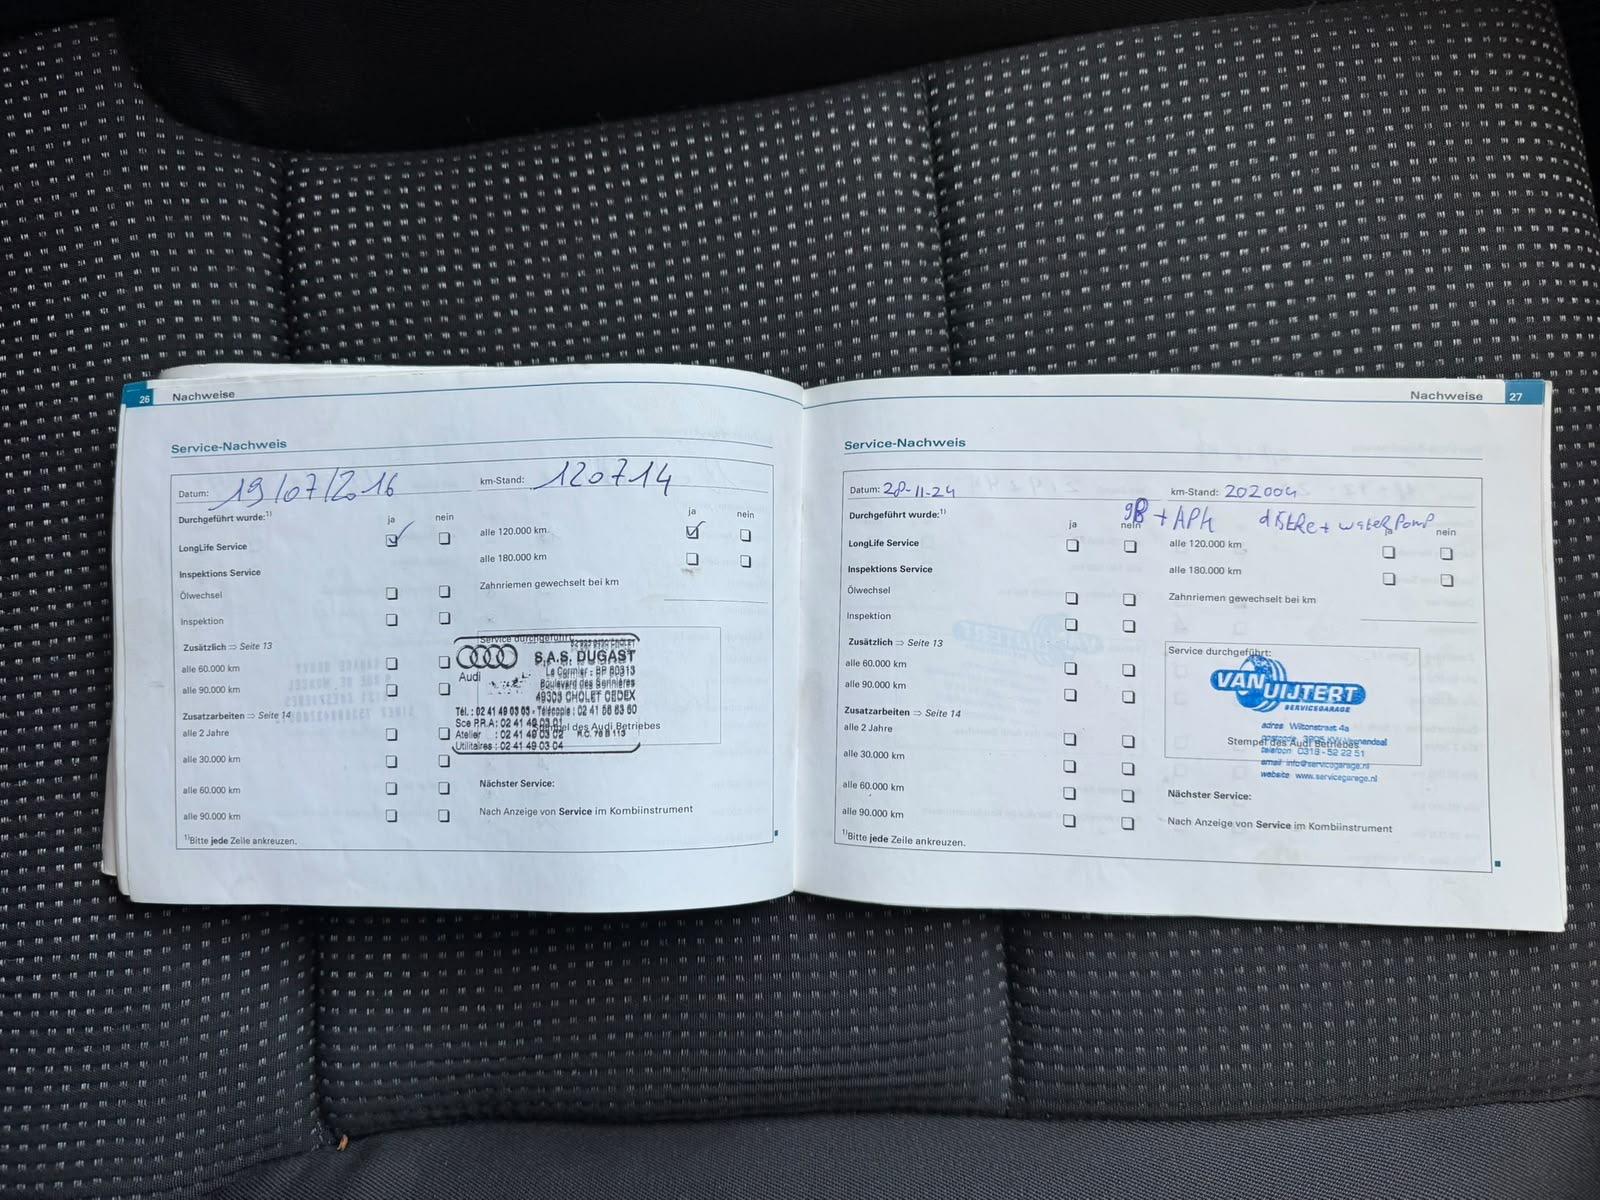 26 Nachweise
Service-Nachweis
Datum: 19/07/2016 km-Stand: 120714
Durchgeführt wurde:1) ja nein
ja nein
LongLife Service
alle 120.000 km
Inspektions Service
alle 180.000 km
Ölwechsel
Zahnriemen gewechselt bei km
Inspektion
Zusätzlich ⇒ Seite 13
alle 60.000 km
alle 90.000 km
Zusatzarbeiten ⇒ Seite 14
alle 2 Jahre
alle 30.000 km
alle 60.000 km
alle 90.000 km
1)Bitte jede Zeile ankreuzen.
Service durchgeführt:
Audi
S.A.S. DUGAST
Le Cormier - BP 80313
Boulevard des
49303 CHOLET CEDEX
Tél. : 02 41 49 03 03 - Télécopie : 02 41 58 63 60
Sce P.R.A: 02 41 49 03 01
Atelier : 02 41 49 03 02
Utilitaires : 02 41 49 03 04
Stempel des Audi Betriebes
Nächster Service:
Nach Anzeige von Service im Kombiinstrument
Nachweise 27
Service-Nachweis
Datum: 28-11-24 km-Stand: 202004
gB + APK distRe + waterPomp
Durchgeführt wurde:1) ja nein
ja nein
LongLife Service
alle 120.000 km
Inspektions Service
alle 180.000 km
Ölwechsel
Zahnriemen gewechselt bei km
Inspektion
Zusätzlich ⇒ Seite 13
alle 60.000 km
alle 90.000 km
Zusatzarbeiten ⇒ Seite 14
alle 2 Jahre
alle 30.000 km
alle 60.000 km
alle 90.000 km
1)Bitte jede Zeile ankreuzen.
Service durchgeführt:
VAN UIJTERT
SERVICEGARAGE
adres Wiltonstraat 4a
postcode 3905 KW Veenendaal
Stempel des Audi Betriebes
telefoon 0318 - 52 22 51
email info@servicegarage.nl
website www.servicegarage.nl
Nächster Service:
Nach Anzeige von Service im Kombiinstrument